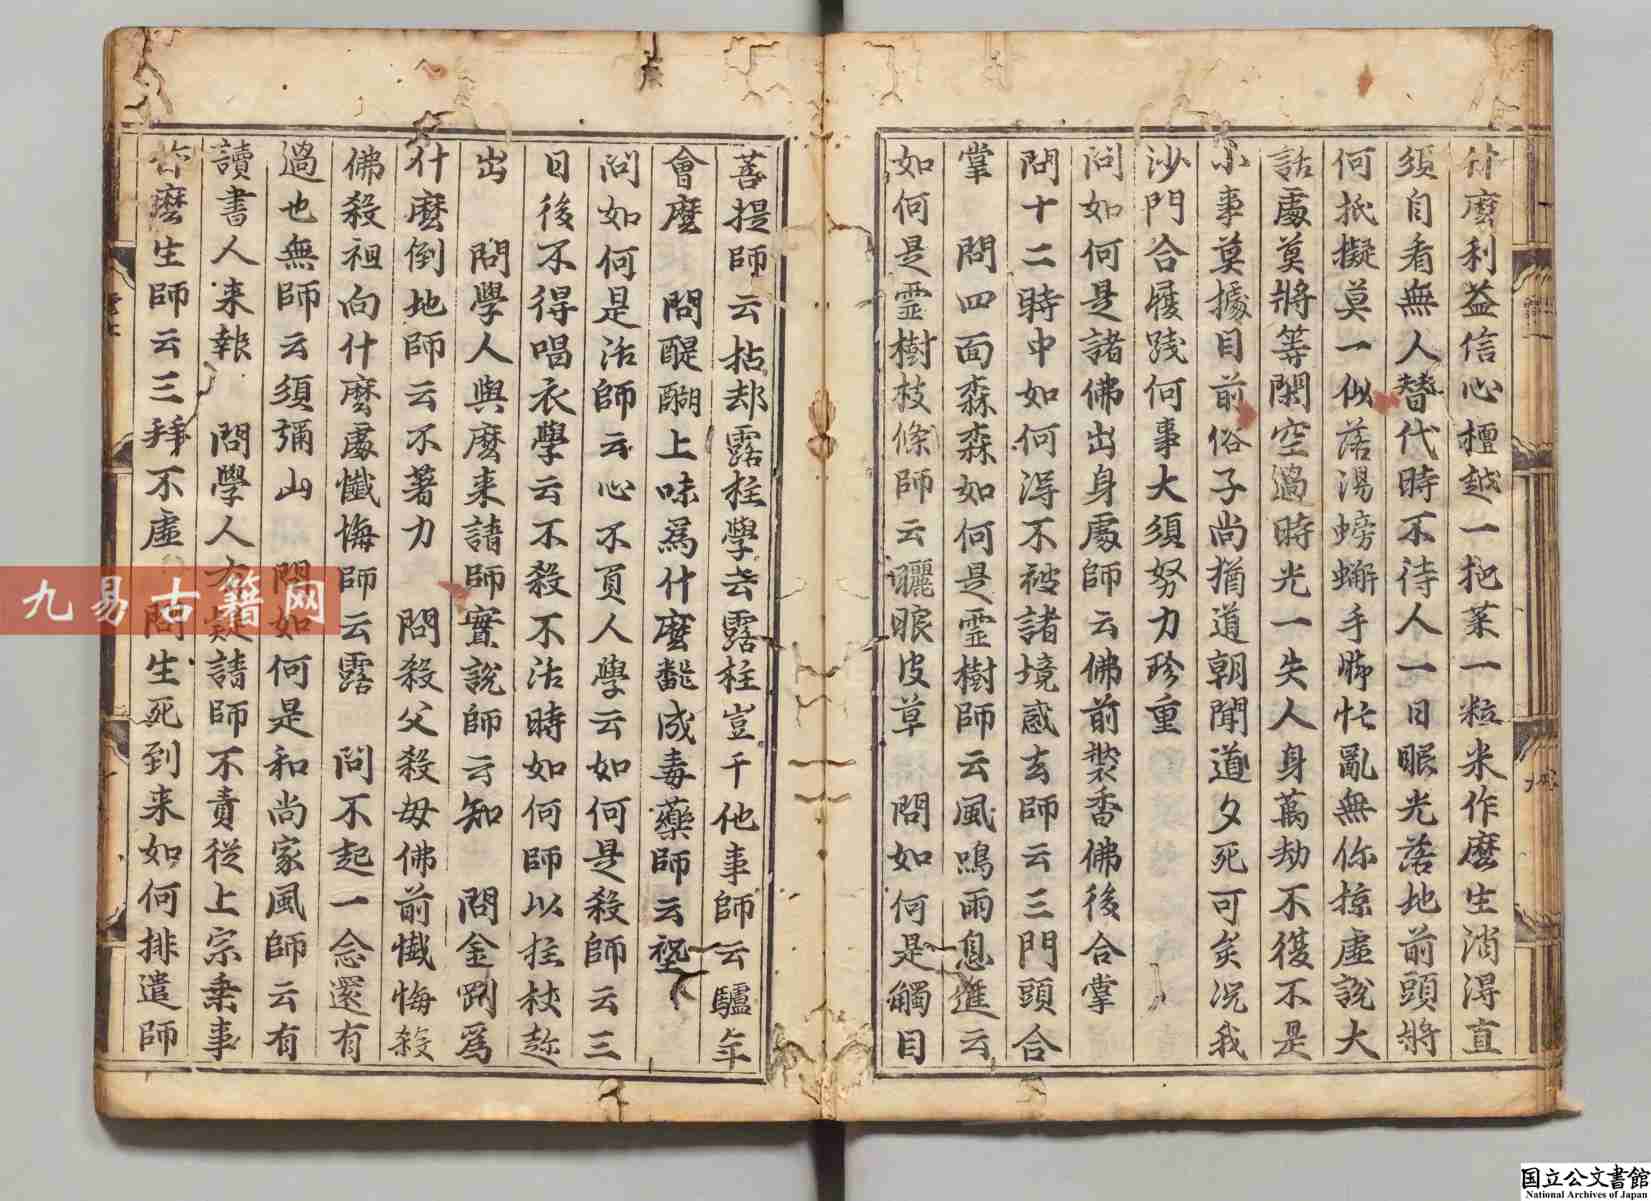 什麽利益信心檀越一把菜一粒米作麽生消得直
須自看無人替代時不待人一日眼光落地前頭將
何抵擬莫一似落湯螃蟹手脚忙亂無你掠虛說大
話處莫將等閑空過時光一失人身萬劫不復不是
小事莫據目前俗子尚猶道朝聞道夕死可矣况我
沙門合履踐何事大須努力珍重
問如何是諸佛出身處師云佛前裝香佛後合掌
問十二時中如何得不被諸境惑去師云三門頭合
掌　問四面森森如何是靈樹師云風鳴雨息進云
如何是靈樹枝條師云曬眼皮草　問如何是觸目
菩提師云拈却露柱學云露柱豈干他事師云驢年
會麽　問醍醐上味爲什麽飜成毒藥師云
問如何是活師云心不負人學云如何是殺師云三
日後不得唱衣學云不殺不活時如何師以拄杖趂
出　問學人與麽来請師實說師云知　問金剛爲
什麽倒地師云不著力　問殺父殺母佛前懺悔殺
佛殺祖向什麽處懺悔師云露　問不起一念還有
過也無師云須彌山　問如何是和尚家風師云有
讀書人来報　問學人有疑請師不責從上宗乗事
作麽生師云三拜不虛　問生死到来如何排遣師
九易古籍网
国立公文書館
National Archives of Japan